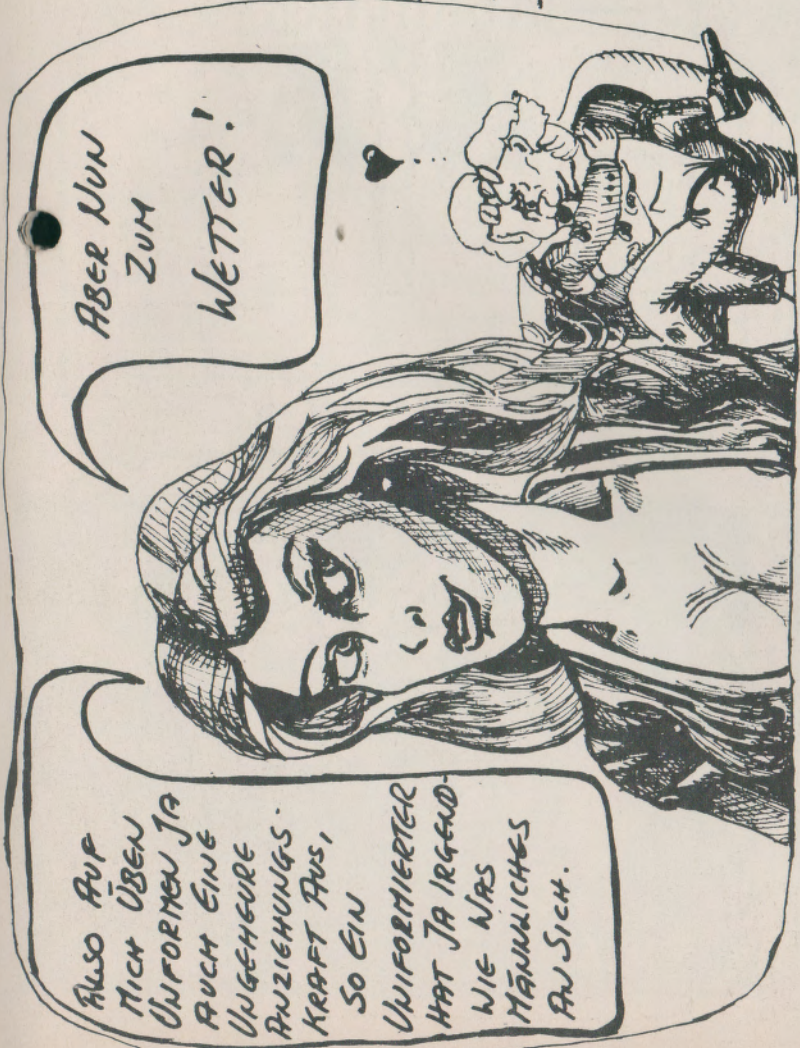 ALSO AUF
MICH ÜBEN
UNIFORMEN JA
AUCH EINE
UNGEHEURE
ANZIEHUNGS-
KRAFT AUS,
SO EIN
UNIFORMIERTER
HAT JA IRGEND-
WIE WAS
MÄNNLICHES
AN SICH.
ABER NUN
ZUM
WETTER!